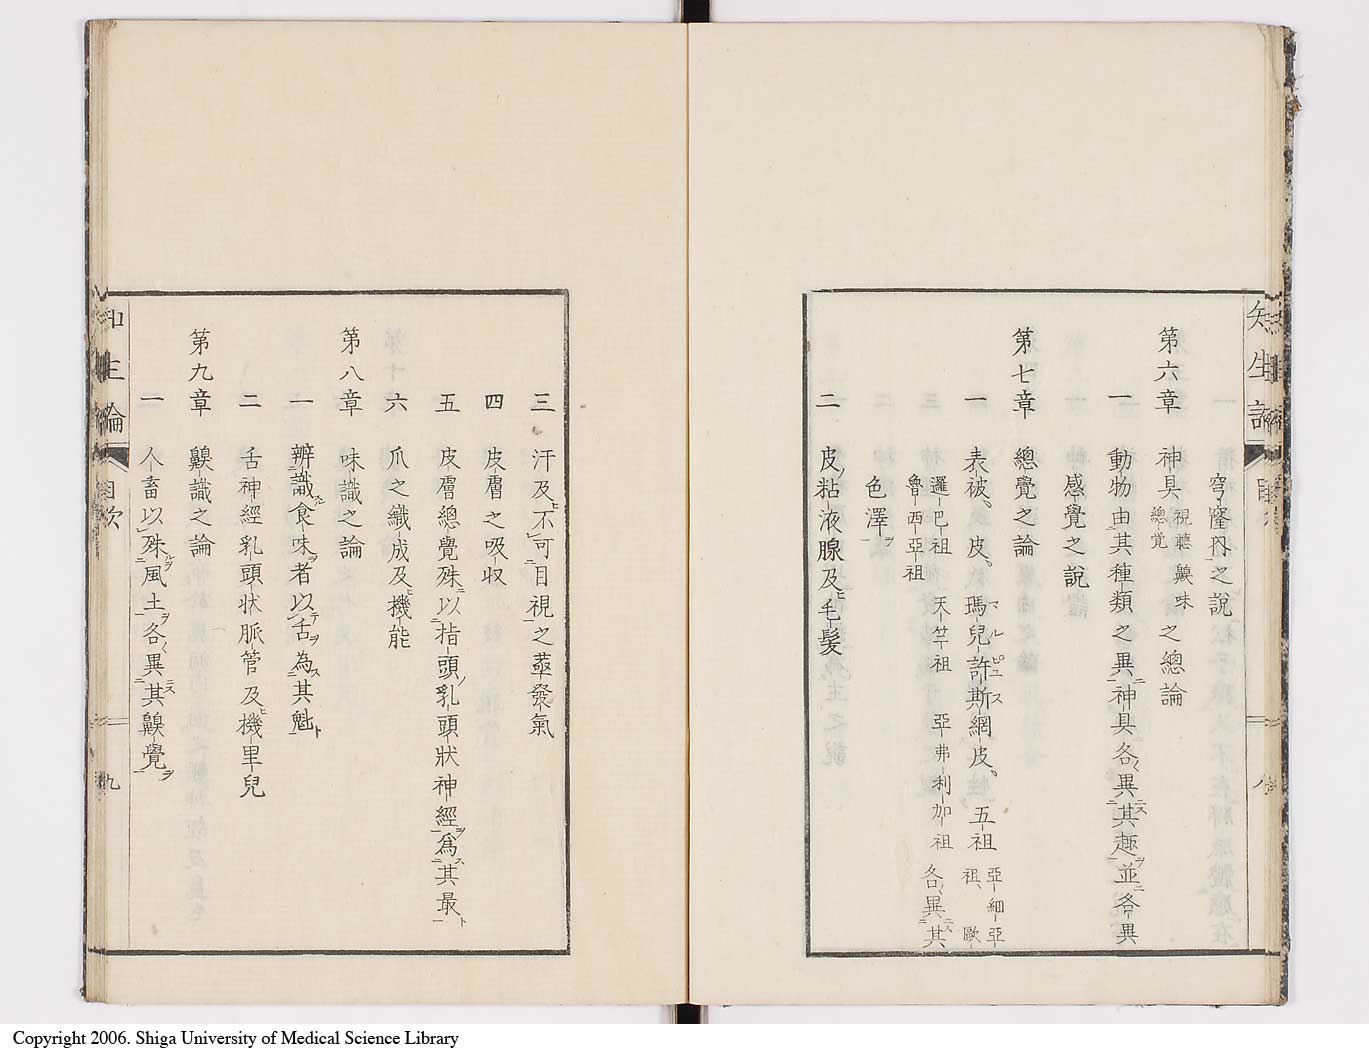 穹窿丹之說
第六章 神具 視聽齅味總覺 之總論
一 動物由其種類之異神具各異其趣並各異
感覺之說
第七章 總覺之論
一 表被、皮、瑪兒許斯網皮、五祖 亞細亞祖、歐
邏巴祖 天竺祖 亞弗利加祖 各異其
魯西亞祖
色澤
二 皮粘液腺及毛髪
三 汗及不可目視之蒸發氣
四 皮膚之吸收
五 皮膚總覺殊以指頭乳頭狀神經爲其最
六 爪之織成及機能
第八章 味識之論
一 辨識食味者以舌為其魁
二 舌神經乳頭狀脈管及機里兒
第九章 齅識之論
一 人畜以殊風土各異其齅覺
目次
九
Copyright 2006. Shiga University of Medical Science Library